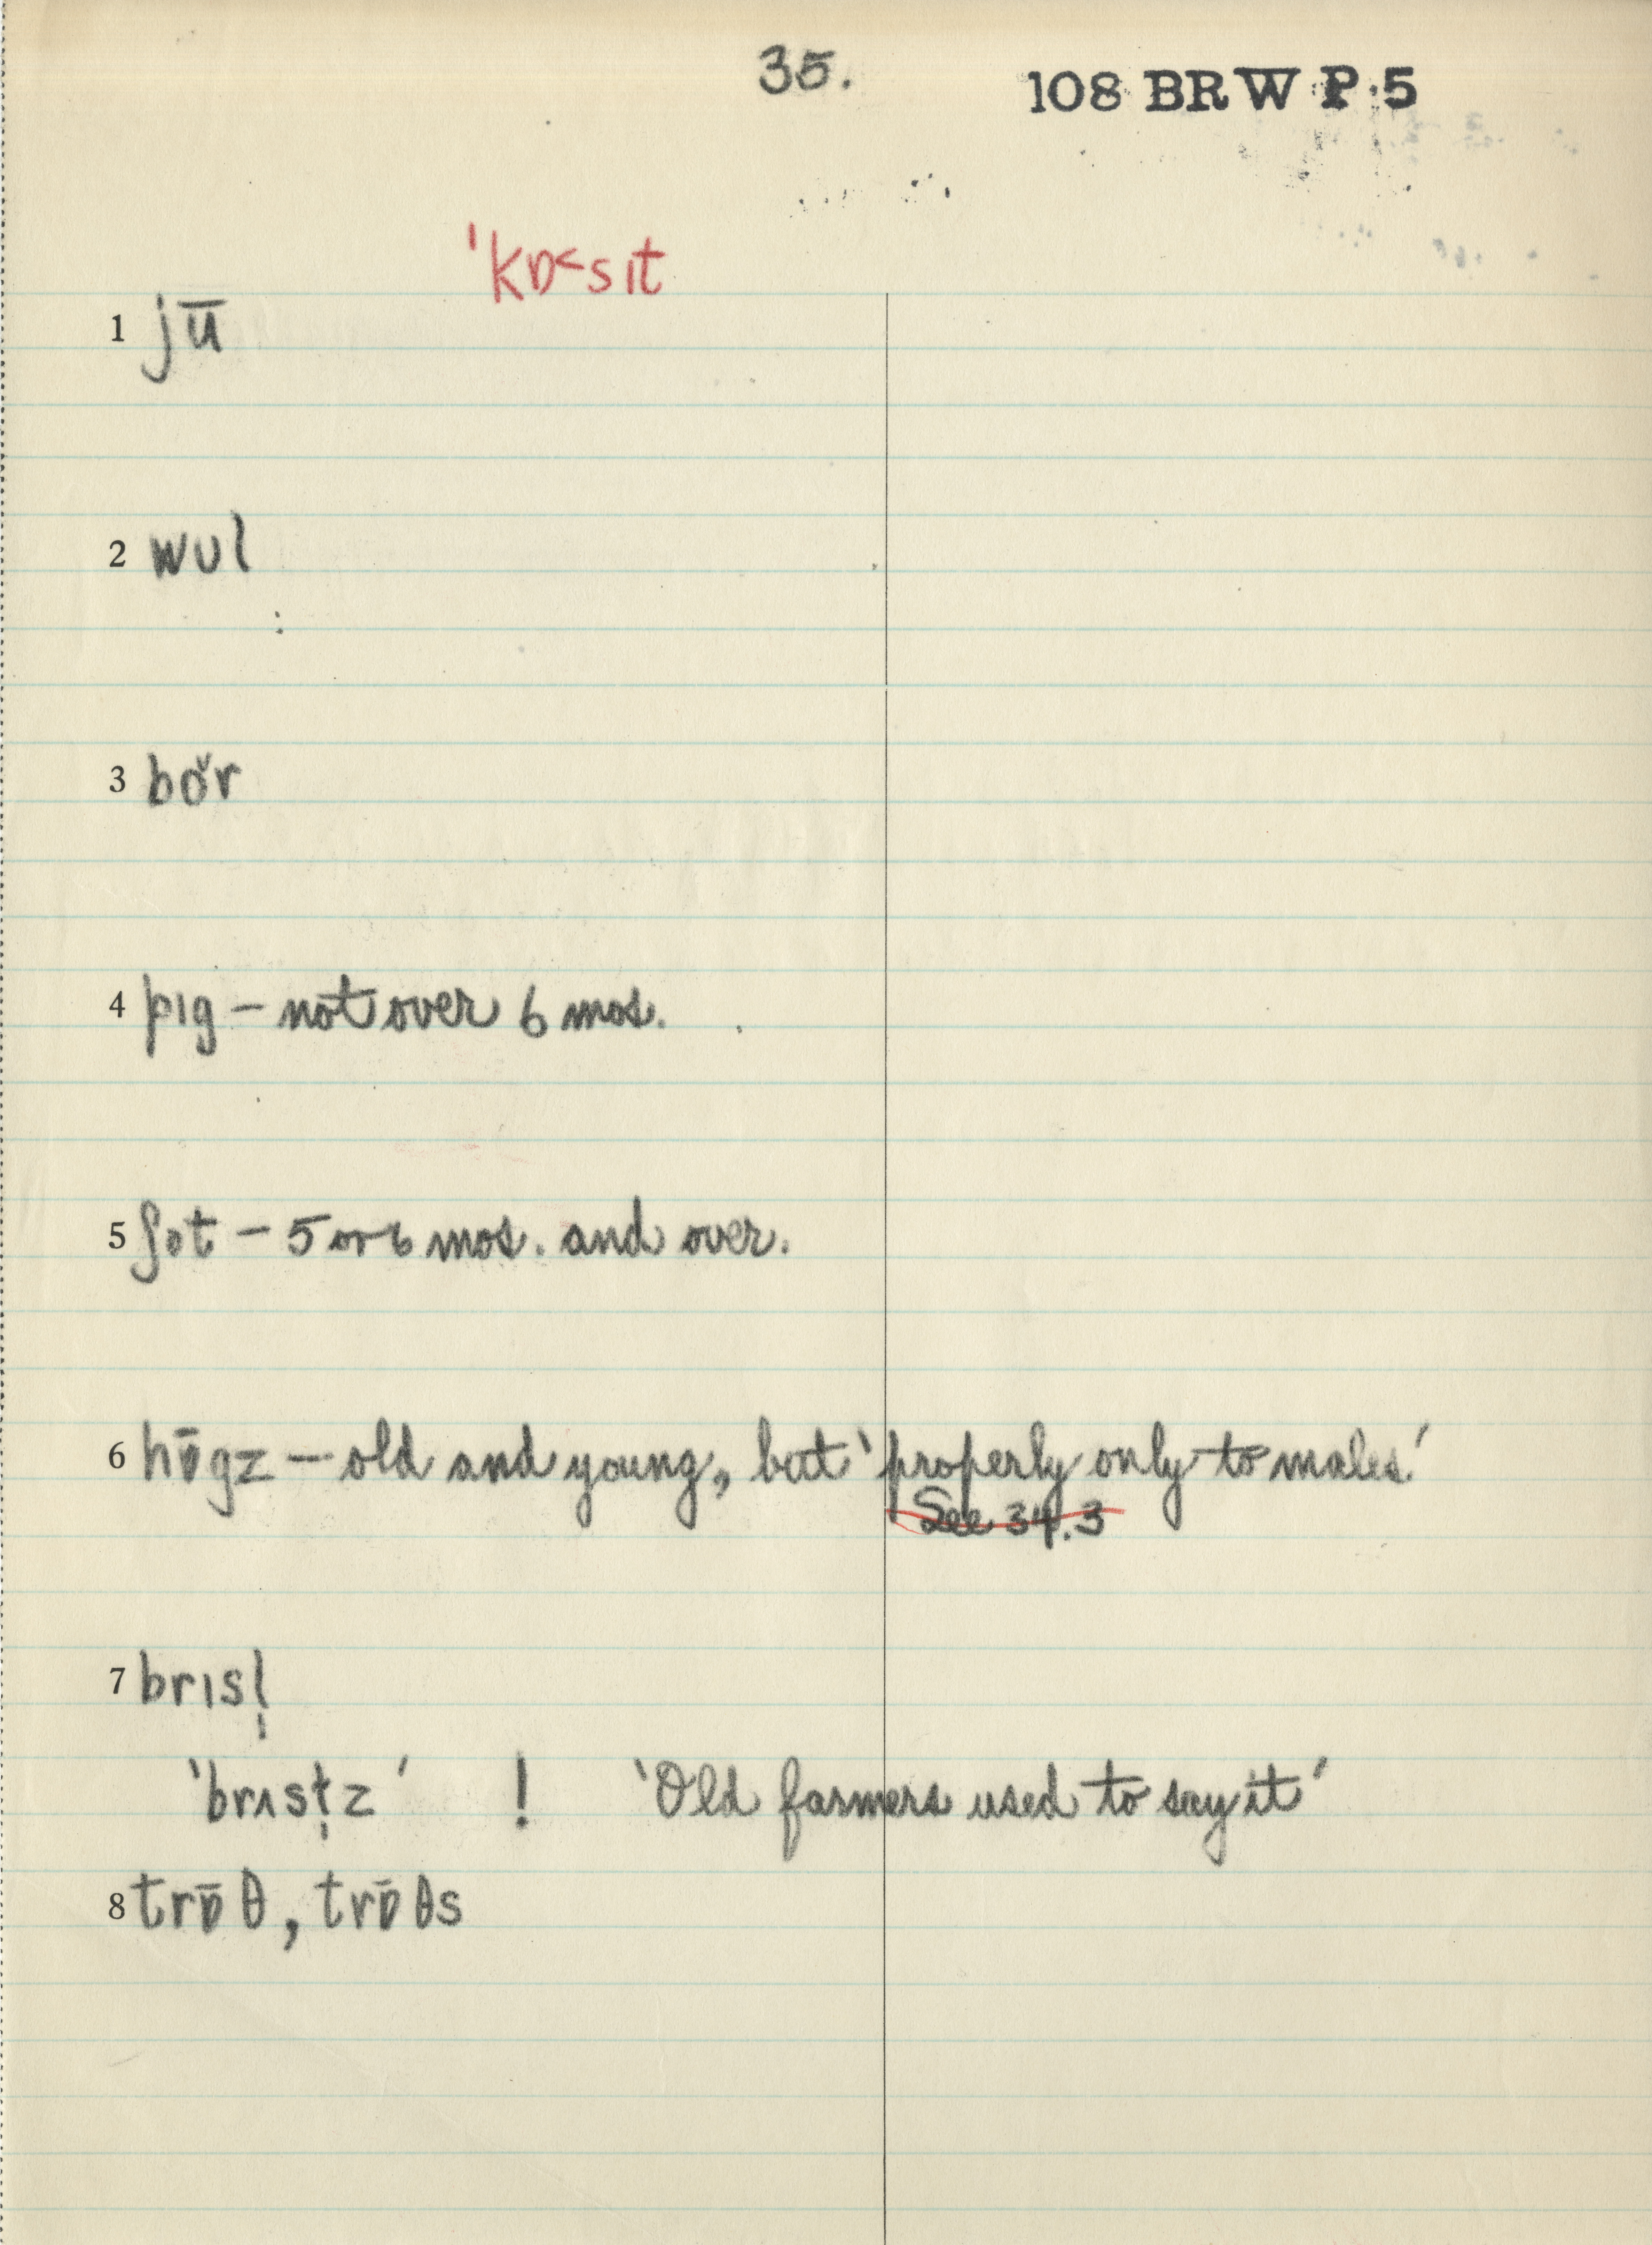 35.
108 BRW P.5
ˈkɒ˂sɪt
1 jū
2 wʊl
3 bŏ̌r
4 pɪg – not over 6 mos.
5 ʃɒt – 5 or 6 mos. and over.
6 hɒ̄gz – old and young, but 'properly only to males.'
See 34.3
7 brɪsl̩
'brɪsɫ̩z' ! 'Old farmers used to say it'
8 trɒ̄θ, trɒ̄θs